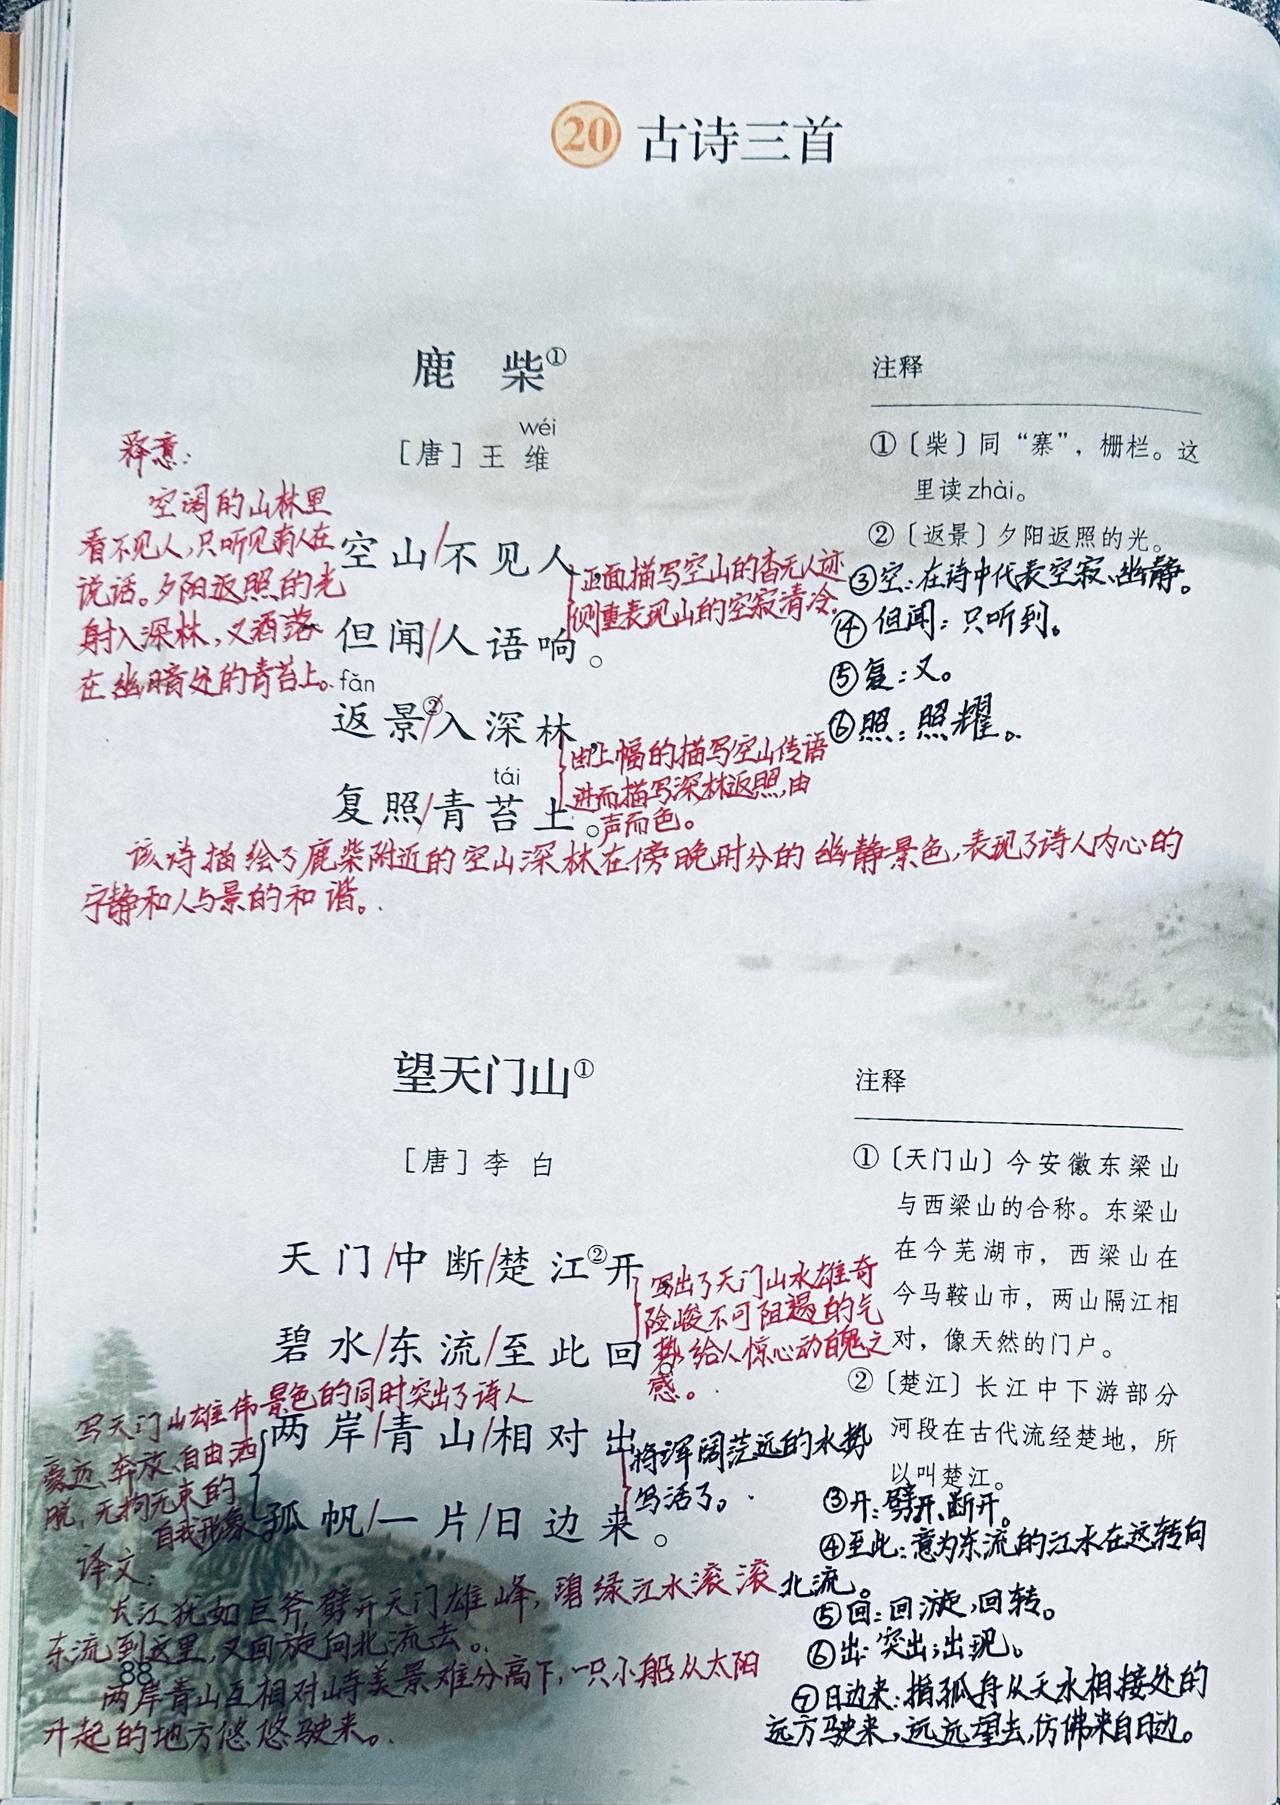 20 古诗三首
鹿 柴①
wéi
［唐］王 维
释意：
空阔的山林里
看不见人，只听见有人在
说话。夕阳返照的光
射入深林，又洒落
在幽暗处的青苔上。
空山/不见人，
但闻/人语响。
fǎn
返景②/入深林，
tái
复照/青苔上。
正面描写空山的杳无人迹
侧重表现山的空寂清冷。
由上幅的描写空山传语
进而描写深林返照，由
声而色。
该诗描绘了鹿柴附近的空山深林在傍晚时分的幽静景色，表现了诗人内心的
宁静和人与景的和谐。
注释
①〔柴〕同“寨”，栅栏。这
里读zhài。
②〔返景〕夕阳返照的光。
③空：在诗中代表空寂、幽静。
④但闻：只听到。
⑤复：又。
⑥照：照耀。
望天门山①
［唐］李 白
天门/中断/楚江②开，
碧水/东流/至此回。
写出了天门山水雄奇
险峻不可阻遏的气
势，给人惊心动魄之
感。
两岸/青山/相对出，
孤帆/一片/日边来。
写天门山雄伟景色的同时突出了诗人
豪迈、奔放、自由洒
脱，无拘无束的
自我形象
将浑阔茫远的水势
写活了。
译文：
长江犹如巨斧劈开天门雄峰，碧绿江水滚滚
东流到这里，又回旋向北流去。
88
两岸青山互相对峙美景难分高下，一只小船从太阳
升起的地方悠悠驶来。
注释
①〔天门山〕今安徽东梁山
与西梁山的合称。东梁山
在今芜湖市，西梁山在
今马鞍山市，两山隔江相
对，像天然的门户。
②〔楚江〕长江中下游部分
河段在古代流经楚地，所
以叫楚江。
③开：劈开、断开。
④至此：意为东流的江水在这转向
北流。
⑤回：回漩，回转。
⑥出：突出；出现。
⑦日边来：指孤舟从天水相接处的
远方驶来，远远望去，仿佛来自日边。